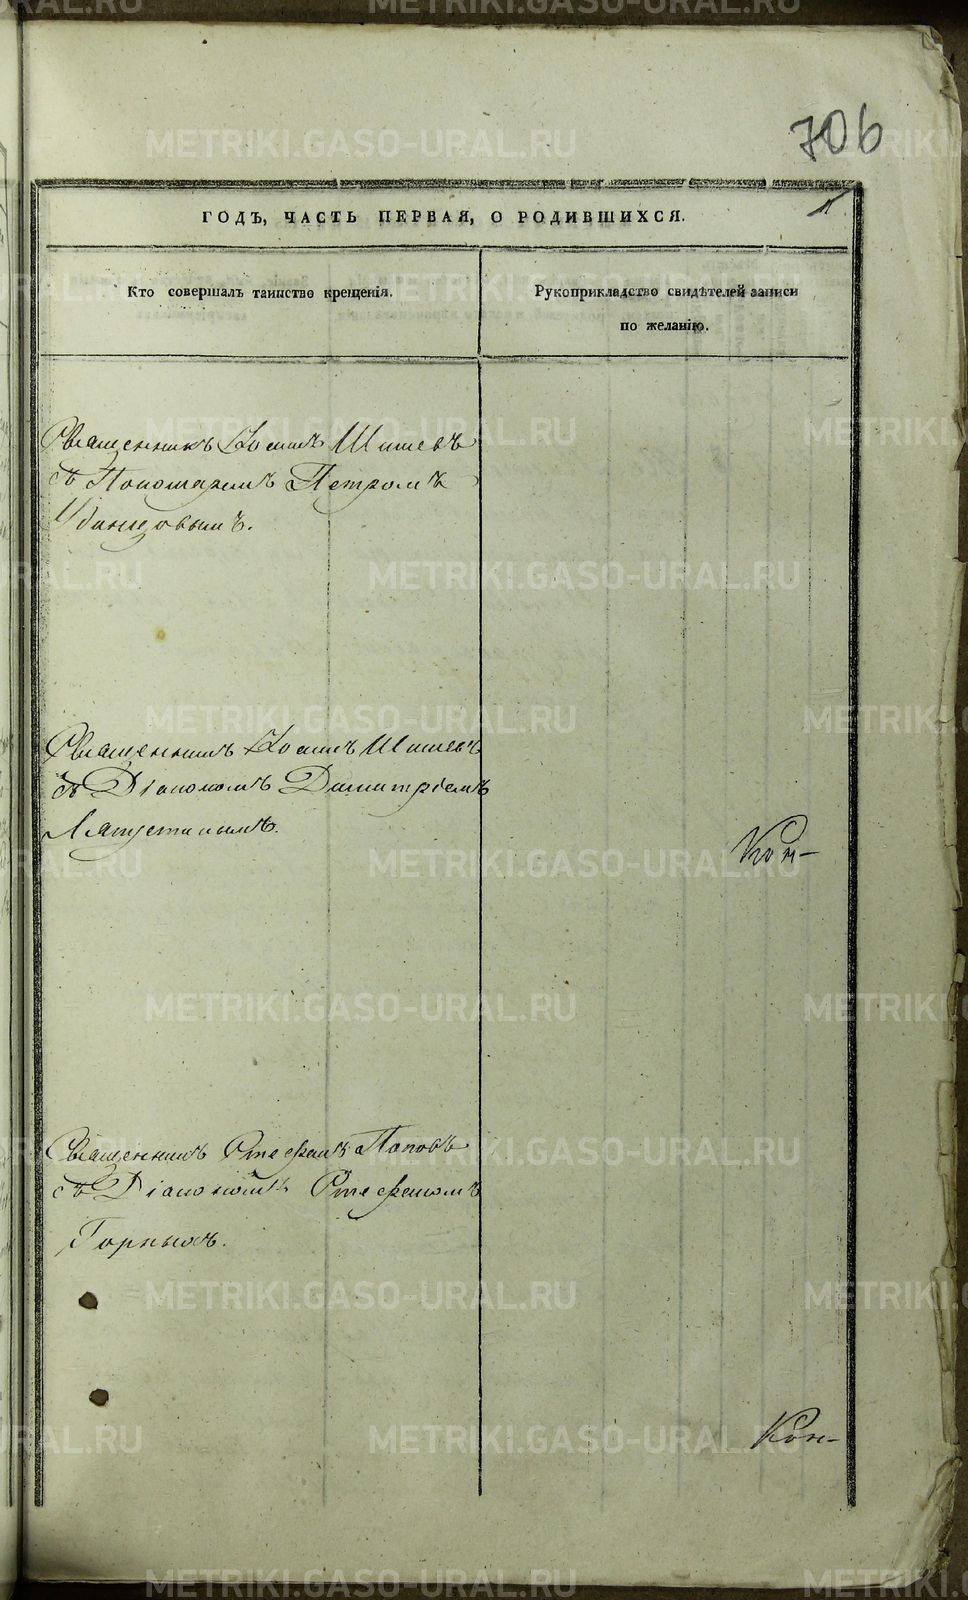 706
ГОДЪ, ЧАСТЬ ПЕРВАЯ, О РОДИВШИХСЯ.
Кто совершалъ таинство крещенія.
Рукоприкладство свидѣтелей записи
по желанію.
Священникъ Іоаннъ Шишевъ
съ Пономаремъ Петромъ
Удинцовымъ.
Священникъ Іоаннъ Шишевъ
съ Діакономъ Димитріемъ
Священникъ Стефанъ Поповъ
съ Діакономъ Стефаномъ
Горныхъ.
METRIKI.GASO-URAL.RU